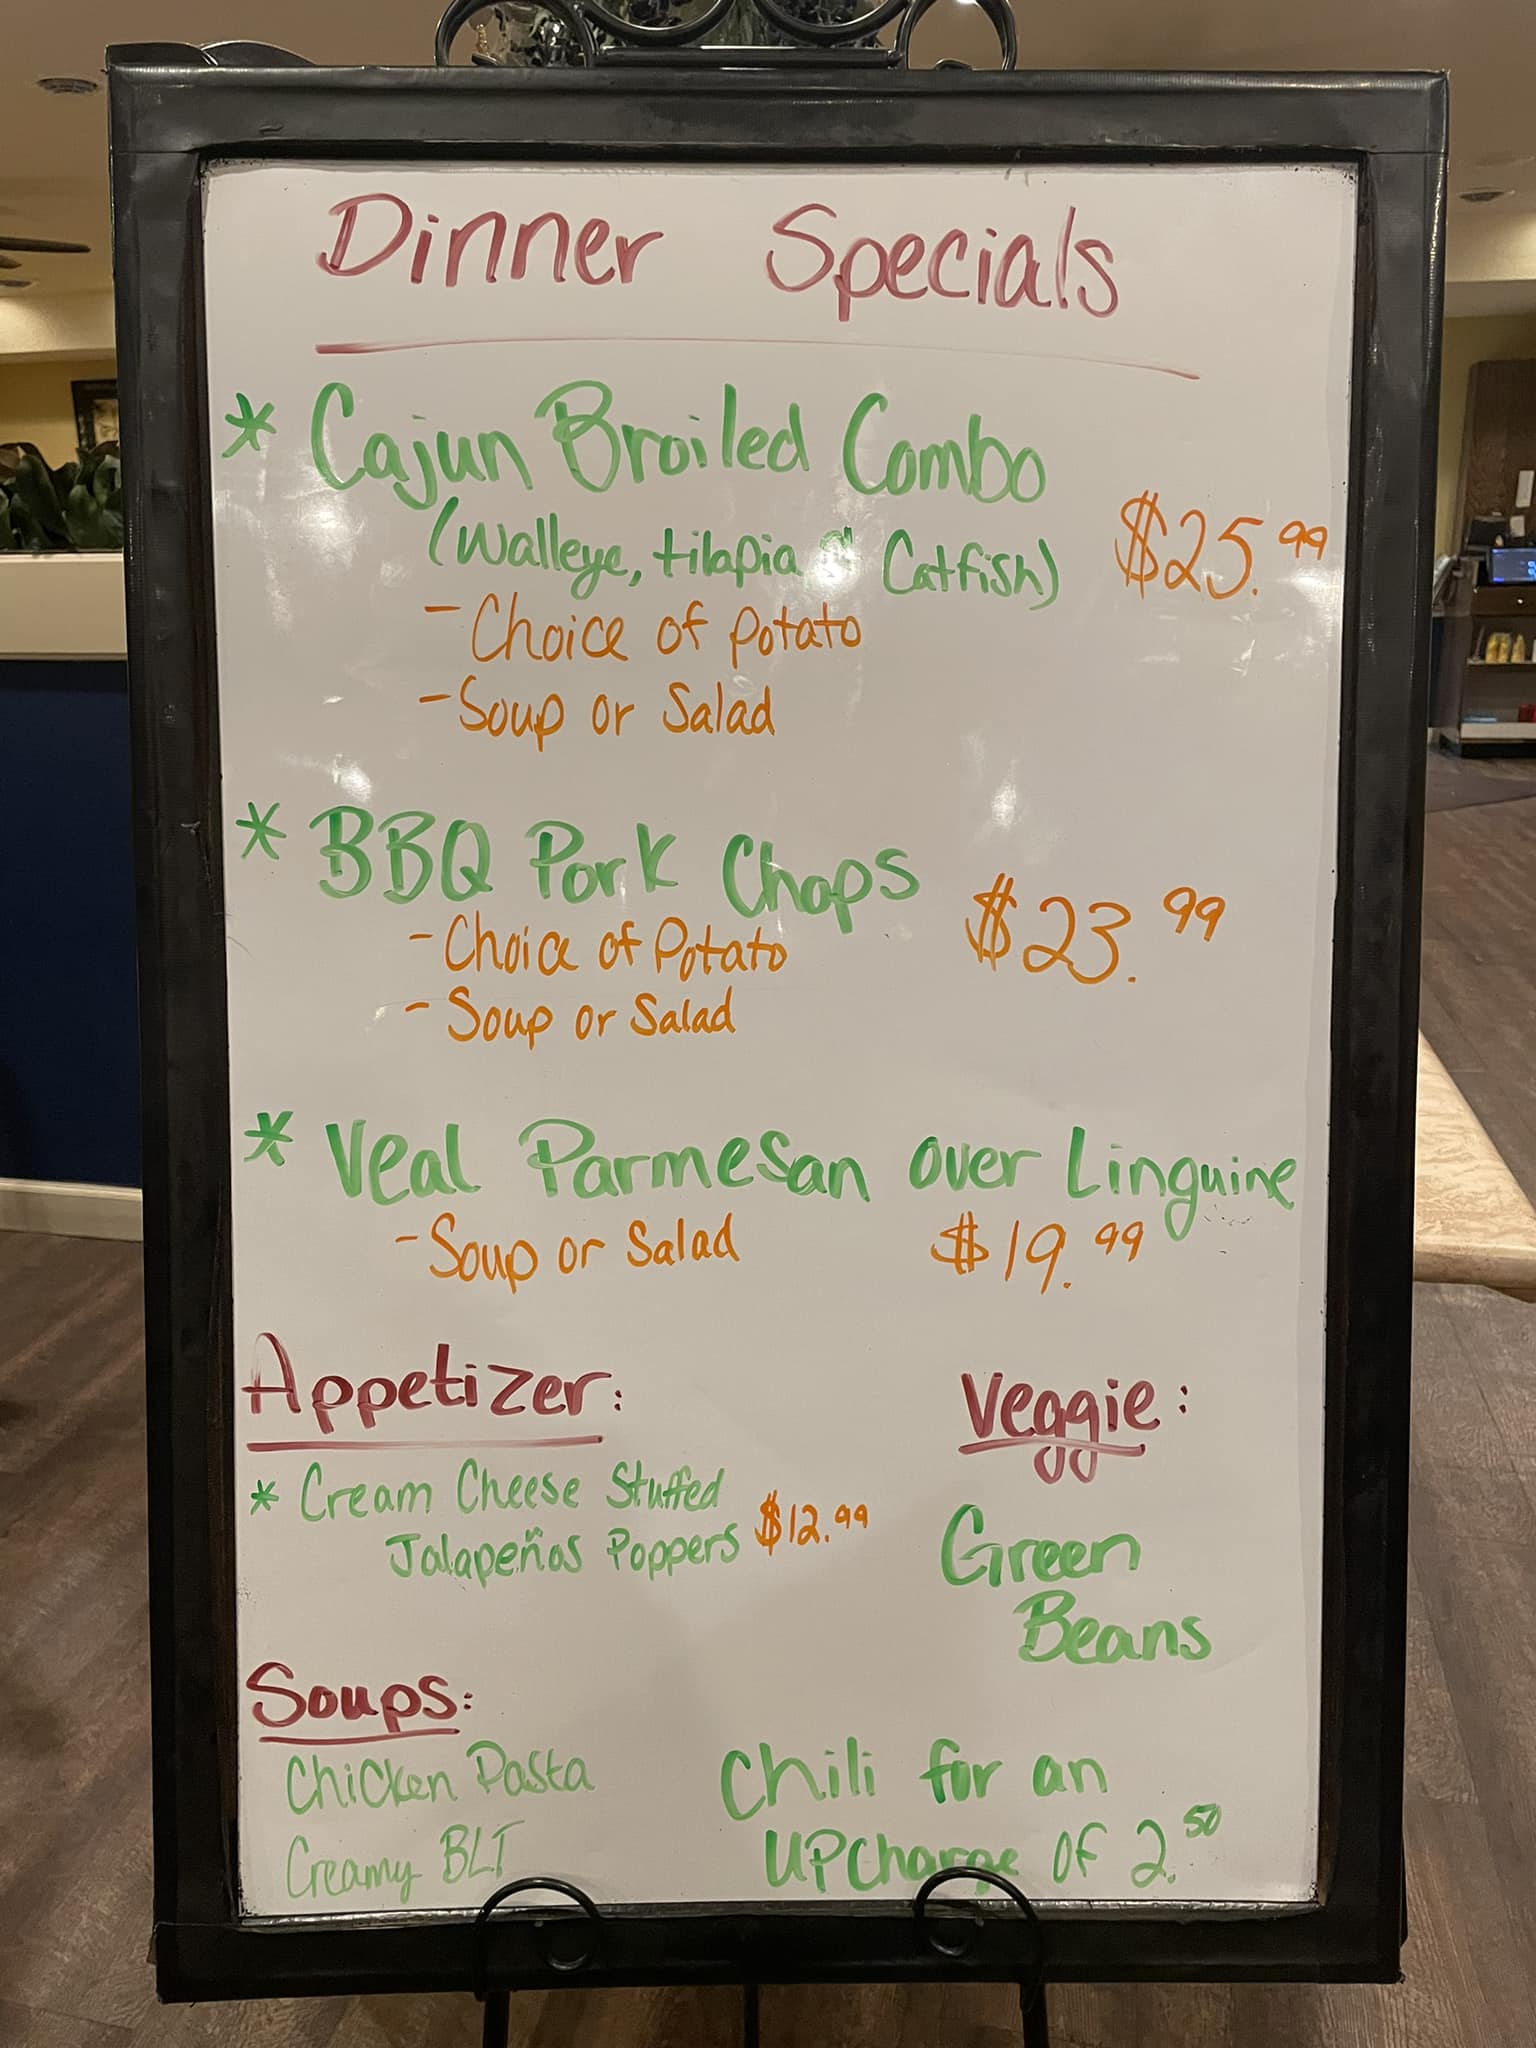 Dinner Specials
* Cajun Broiled Combo
(Walleye, tilapia & Catfish) $25.99
- Choice of potato
- Soup or Salad
* BBQ Pork Chops $23.99
- Choice of Potato
- Soup or Salad
* Veal Parmesan over Linguine
- Soup or Salad $19.99
Appetizer:
* Cream Cheese Stuffed
Jalapeños Poppers $12.99
Veggie:
Green
Beans
Soups:
Chicken Pasta
Creamy BLT
Chili for an
UPCharge of 2.50